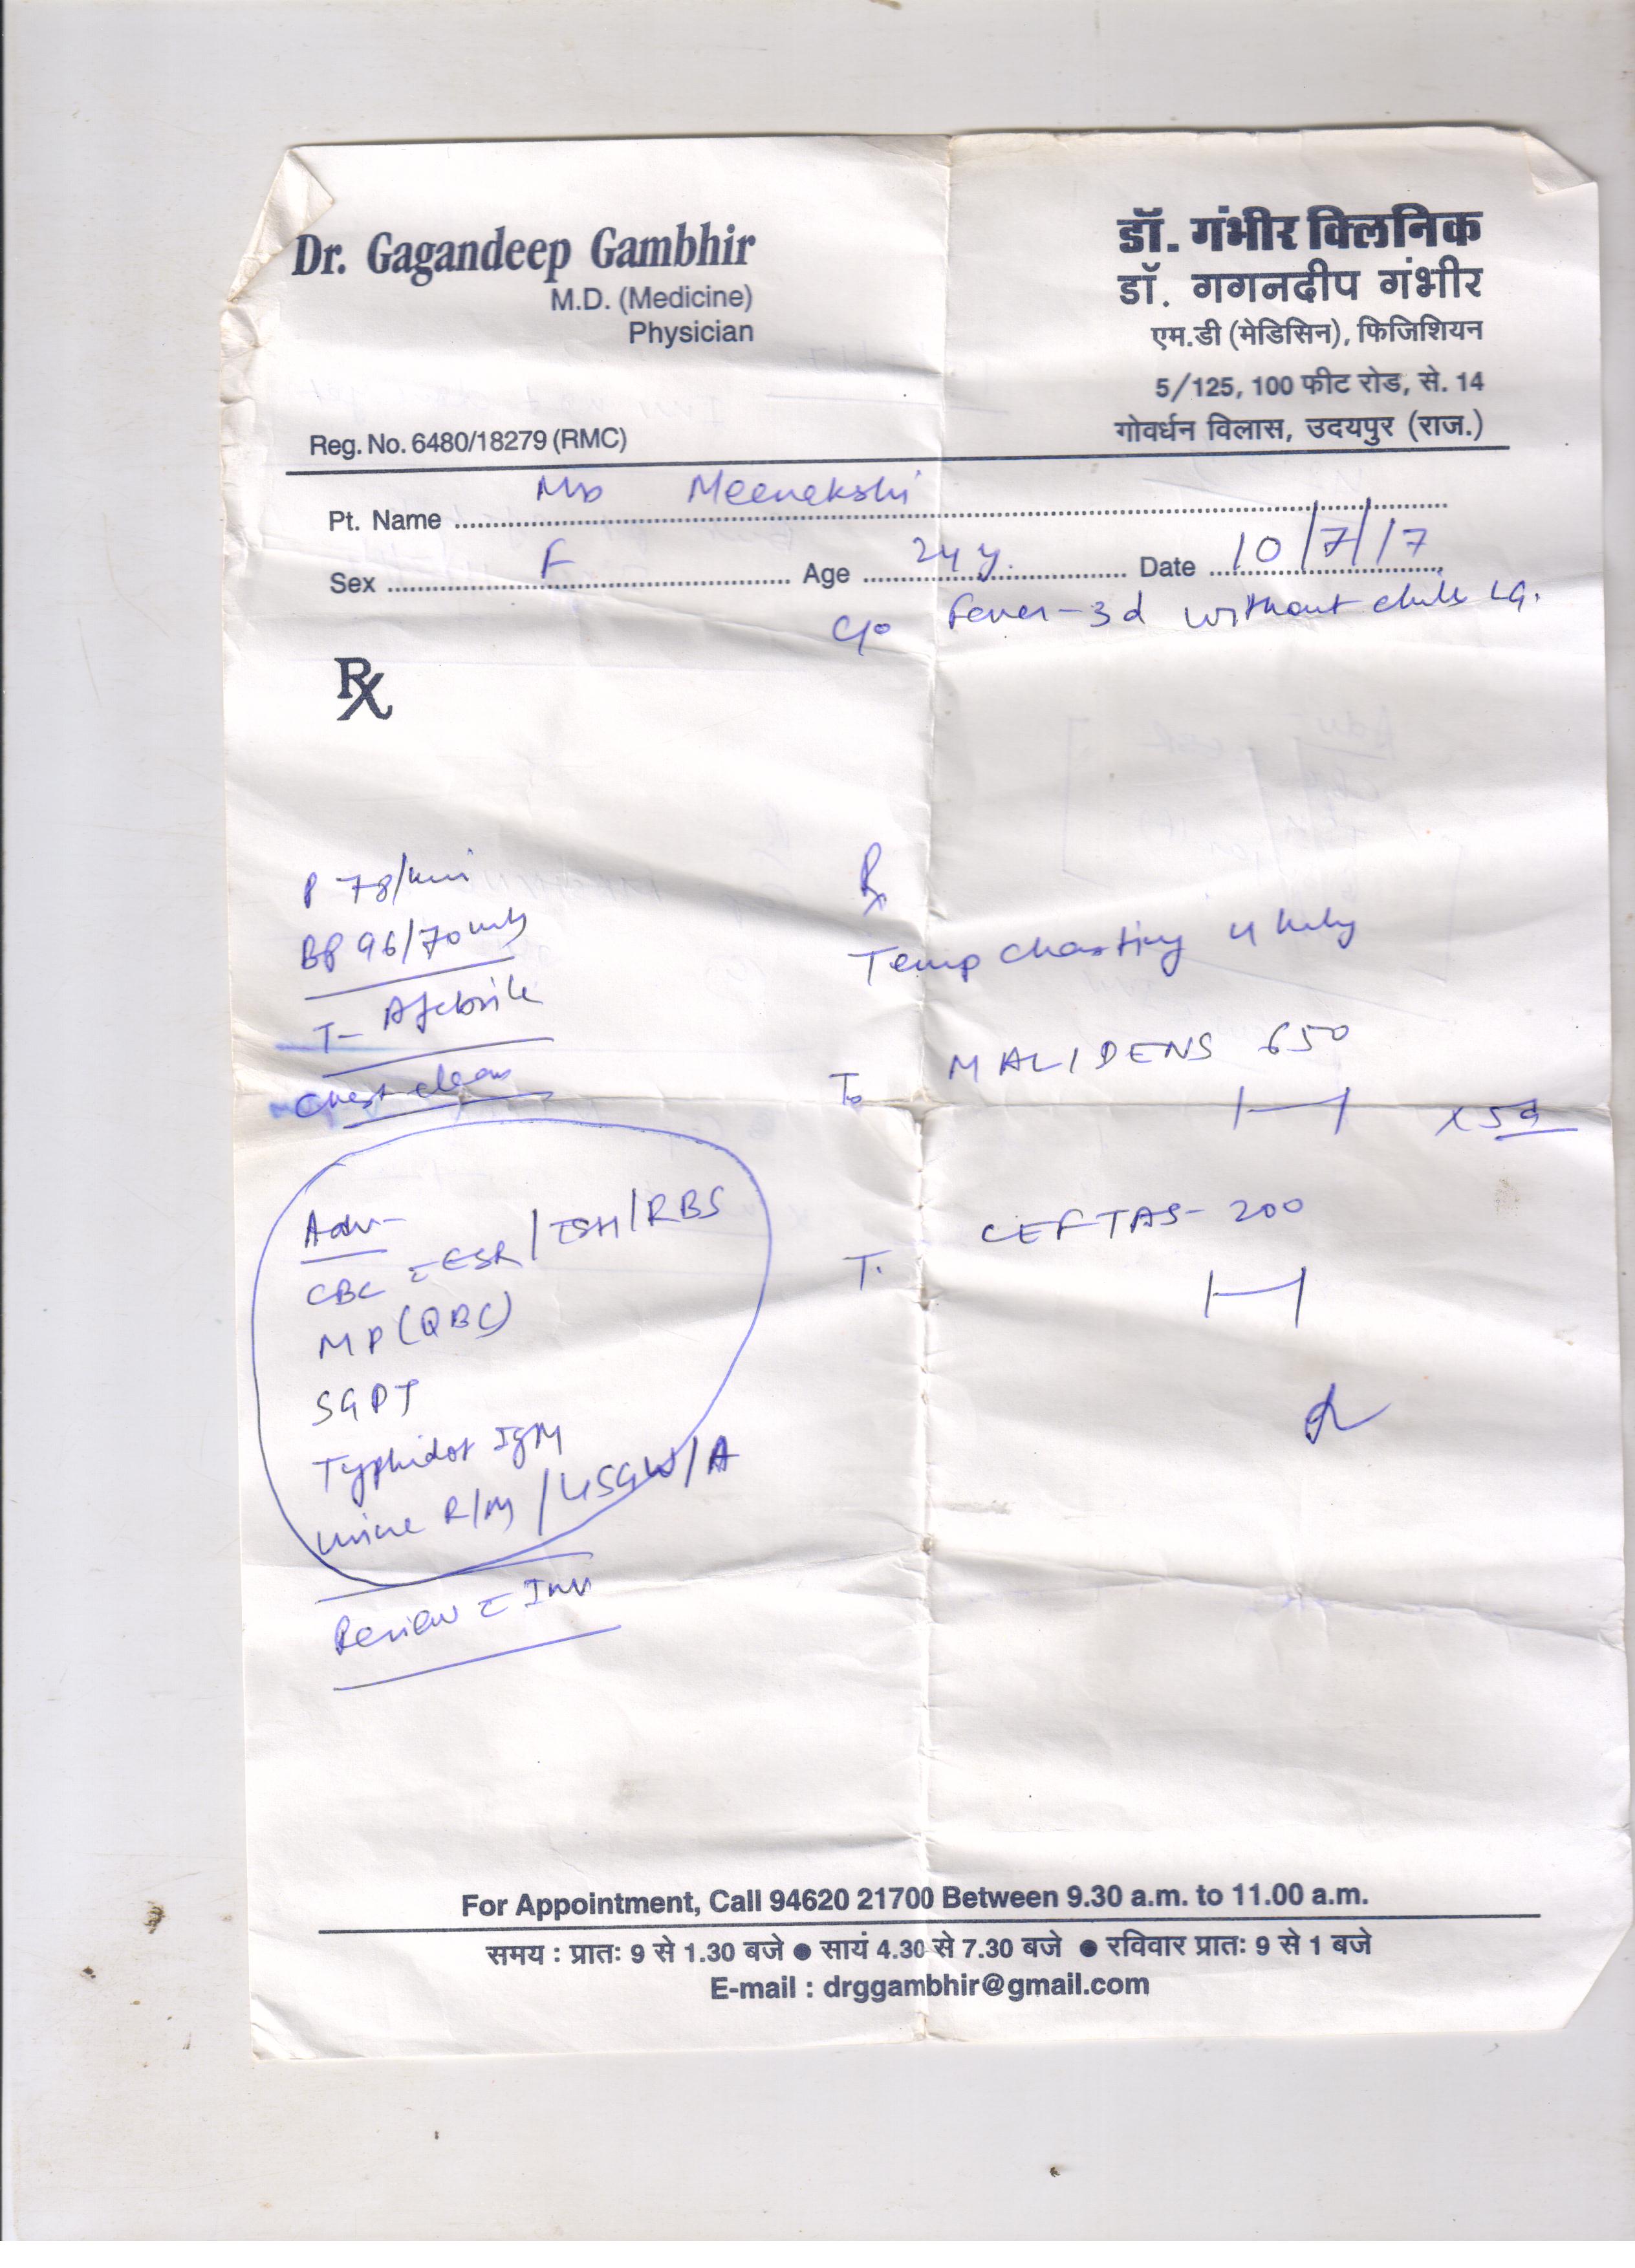 Dr. Gagandeep Gambhir
M.D. (Medicine)
Physician
Reg. No. 6480/18279 (RMC)
डॉ. गंभीर क्लिनिक
डॉ. गगनदीप गंभीर
एम.डी (मेडिसिन), फिजिशियन
5/125, 100 फीट रोड, से. 14
गोवर्धन विलास, उदयपुर (राज.)
Pt. Name Meenakshi
Sex F Age 24 y. Date 10/7/17
c/o Fever - 3d without chills
Rx
P 78/min
BP 96/70
T- Afebrile
Chest clear
Adv-
CBC c ESR / TSH / RBS
MP (QBC)
SGPT
Typhidot IgM
Urine R/M / USG W/A
Review c Inv
Rx
Temp charting 4 hrly
T. MALIDENS 650
x 5d
T. CEFTAS- 200
For Appointment, Call 94620 21700 Between 9.30 a.m. to 11.00 a.m.
समय : प्रातः 9 से 1.30 बजे ● सायं 4.30 से 7.30 बजे ● रविवार प्रातः 9 से 1 बजे
E-mail : drggambhir@gmail.com